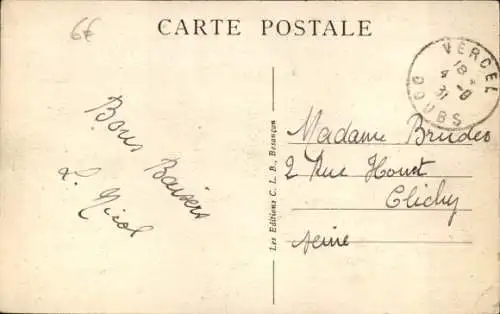 6€
CARTE POSTALE
VERCEL
18 *
4 - 8
31
DOUBS
Bons Baisers
L. Nicol
Les Editions C. L. B., Besançon
Madame Brudes
2 Rue Houst
Clichy
Seine